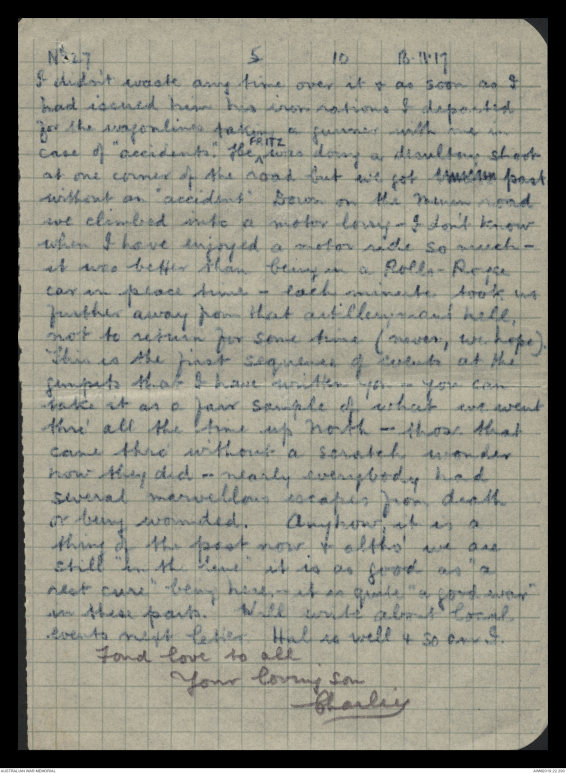 No. 27 5 10 13.11.17
I didn't waste any time over it & as soon as I
had issued him his iron rations I departed
for the wagonlines taking a gunner with me in
case of "accidents". The FRITZ was doing a desultory shoot
at one corner of the road but we got past
without an "accident" Down on the Menin road
we climbed into a motor lorry - I don't know
when I have enjoyed a motor ride so much -
it was better than being in a Rolls-Royce
car in peace time - each minute took us
further away from that artilleryman's hell,
not to return for some time (never, we hope).
This is the first sequence of events at the
gunpits that I have written you - you can
take it as a fair sample of what we went
thro' all the time up North - those that
came thro' without a scratch wonder
how they did - nearly everybody had
several marvellous escapes from death
or being wounded. Anyhow, it is a
thing of the past now & altho' we are
still "in the line" it is as good as "a
rest cure" being here - it is quite "a good war"
in these parts. Will write about local
events next letter. Hal is well & so am I.
Fond love to all
Your loving son
Charlie
AUSTRALIAN WAR MEMORIAL